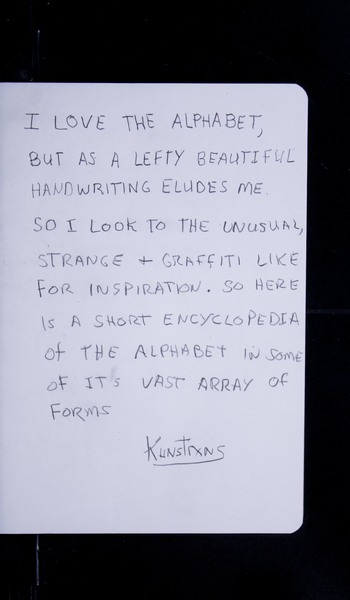 I LOVE THE ALPHABET,
BUT AS A LEFTY BEAUTIFUL
HANDWRITING ELUDES ME.
SO I LOOK TO THE UNUSUAL,
STRANGE + GRAFFITI LIKE
FOR INSPIRATION. SO HERE
IS A SHORT ENCYCLOPEDIA
Of THE ALPHABET IN SOME
OF IT'S VAST ARRAY OF
FORMS